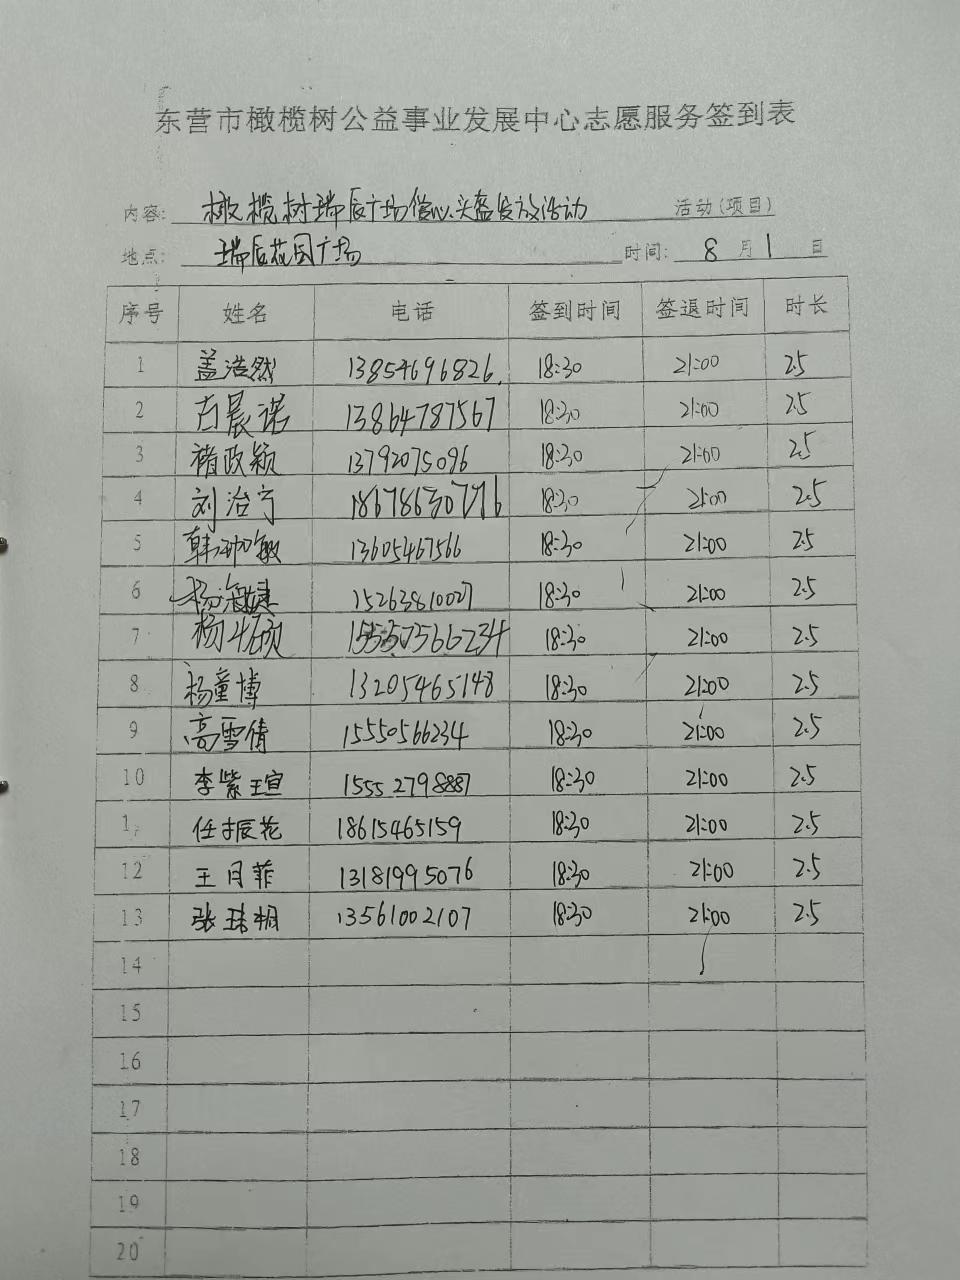 东营市橄榄树公益事业发展中心志愿服务签到表
内容: 橄榄树瑞辰广场信心头盔发放活动 活动(项目)
地点: 瑞辰花园广场 时间: 8 月 1 日
序号 姓名 电话 签到时间 签退时间 时长
1 盖浩然 13854696826 18:30 21:00 2.5
2 古晨诺 13864787567 18:30 21:00 2.5
3 褚政颖 13792075096 18:30 21:00 2.5
4 刘治宁 18:30 21:00 2.5
5 13605467566 18:30 21:00 2.5
6 15263810027 18:30 21:00 2.5
7 18:30 21:00 2.5
8 杨童博 13205465148 18:30 21:00 2.5
9 高雪倩 15550566234 18:30 21:00 2.5
10 李紫瑄 15552798887 18:30 21:00 2.5
1 任振花 18615465159 18:30 21:00 2.5
12 王月菲 13181995076 18:30 21:00 2.5
13 张珠桐 13561002107 18:30 21:00 2.5
14
15
16
17
18
19
20